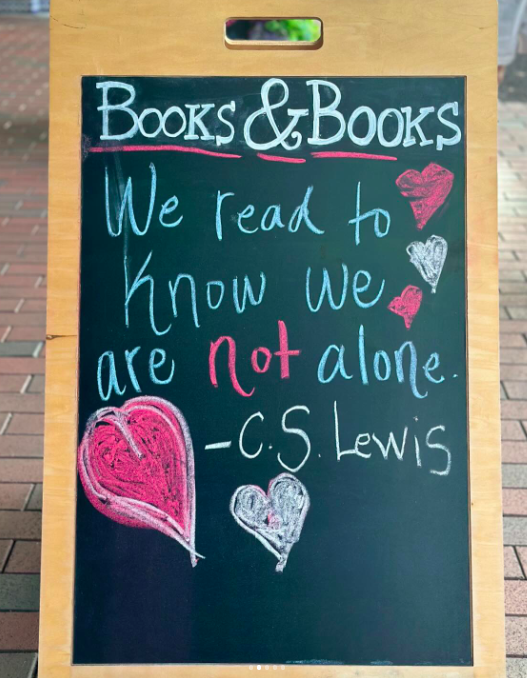 BOOKS & BOOKS
We read to
know we
are not alone.
- C.S. Lewis